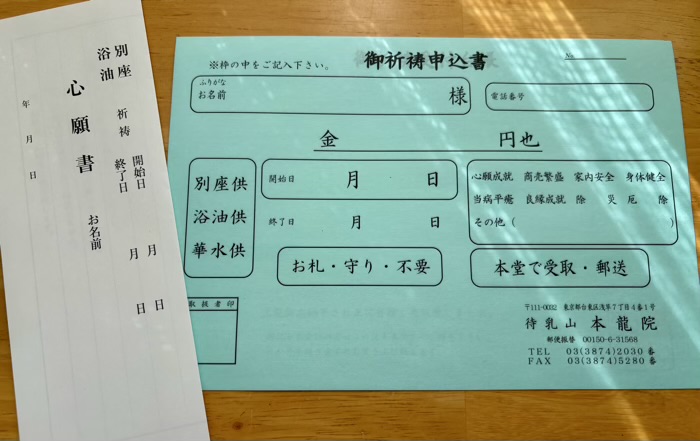 別座
浴油
祈祷
心願書
開始日 月 日
終了日 月 日
お名前
年 月 日
御祈祷申込書
※枠の中をご記入下さい。
No.
ふりがな
お名前 様
電話番号
金 円也
別座供
浴油供
華水供
開始日 月 日
終了日 月 日
心願成就 商売繁盛 家内安全 身体健全
当病平癒 良縁成就 除災 厄除
その他( )
お札・守り・不要
本堂で受取・郵送
取扱者印
〒111-0032 東京都台東区浅草7丁目4番1号
待乳山 本龍院
郵便振替 00150-6-31568
TEL 03(3874)2030番
FAX 03(3874)5280番